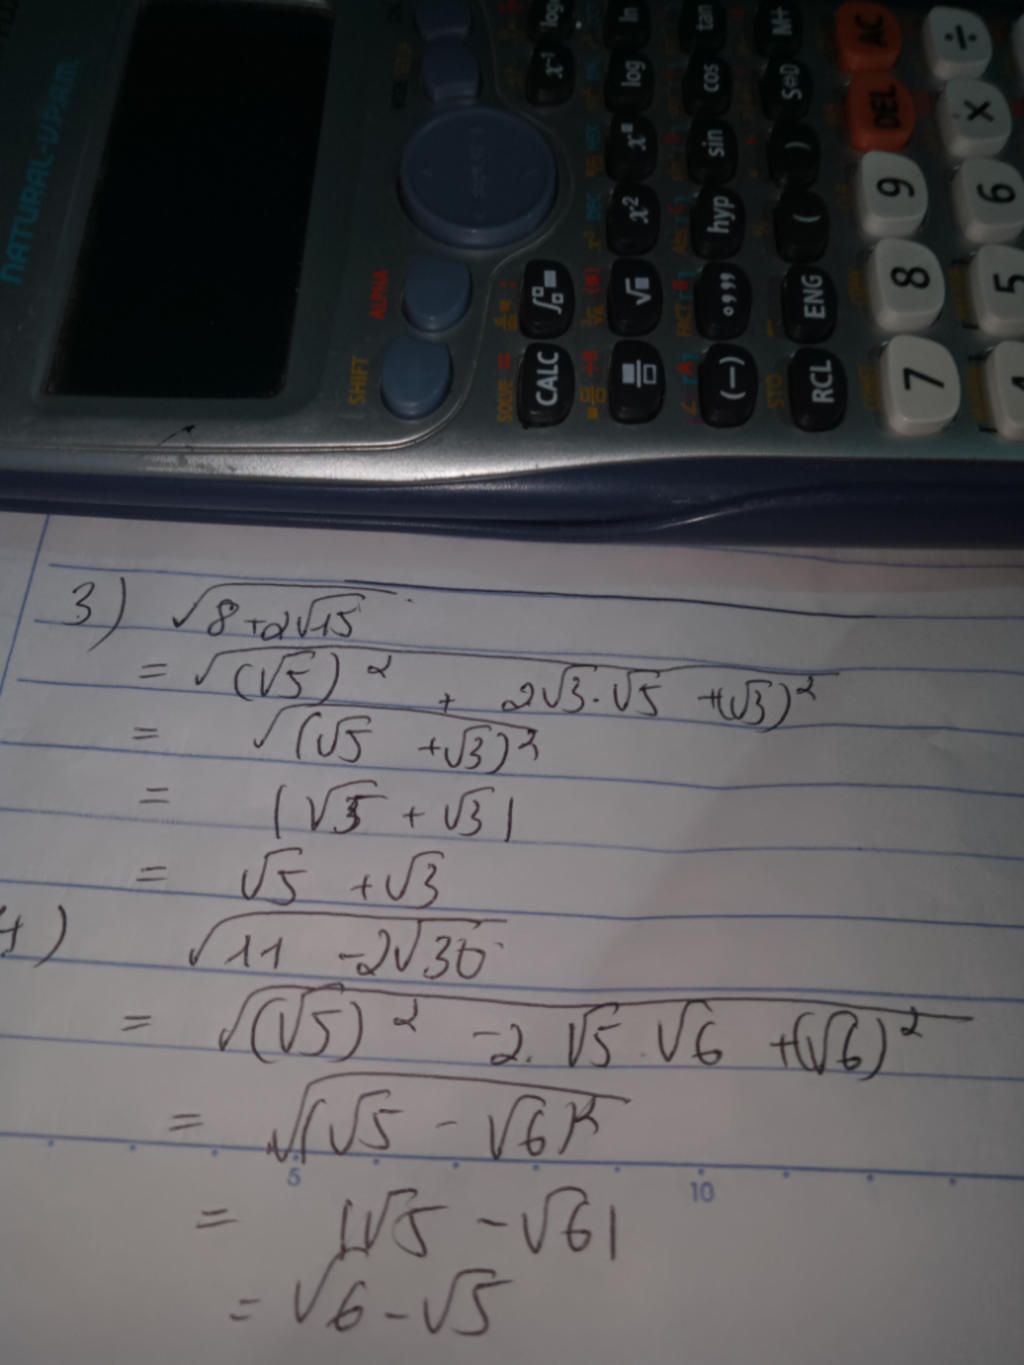 NATURAL-V.P.A.M.
SHIFT
ALPHA
x⁻¹ log
CALC ∫
SOLVE =
√ x² log ln
(−) °,,, hyp sin cos tan
RCL ENG ( ) S⇔D M+
STO
7 8 9 DEL AC
5 6 × ÷
3) √(8+2√15)
= √((√5)² + 2√3.√5 +(√3)²)
= √((√5 +√3)²)
= |√5 + √3|
= √5 +√3
4) √(11 -2√30)
= √((√5)² -2.√5.√6 +(√6)²)
= √((√5 - √6)²)
5 10
= |√5 -√6|
= √6 -√5